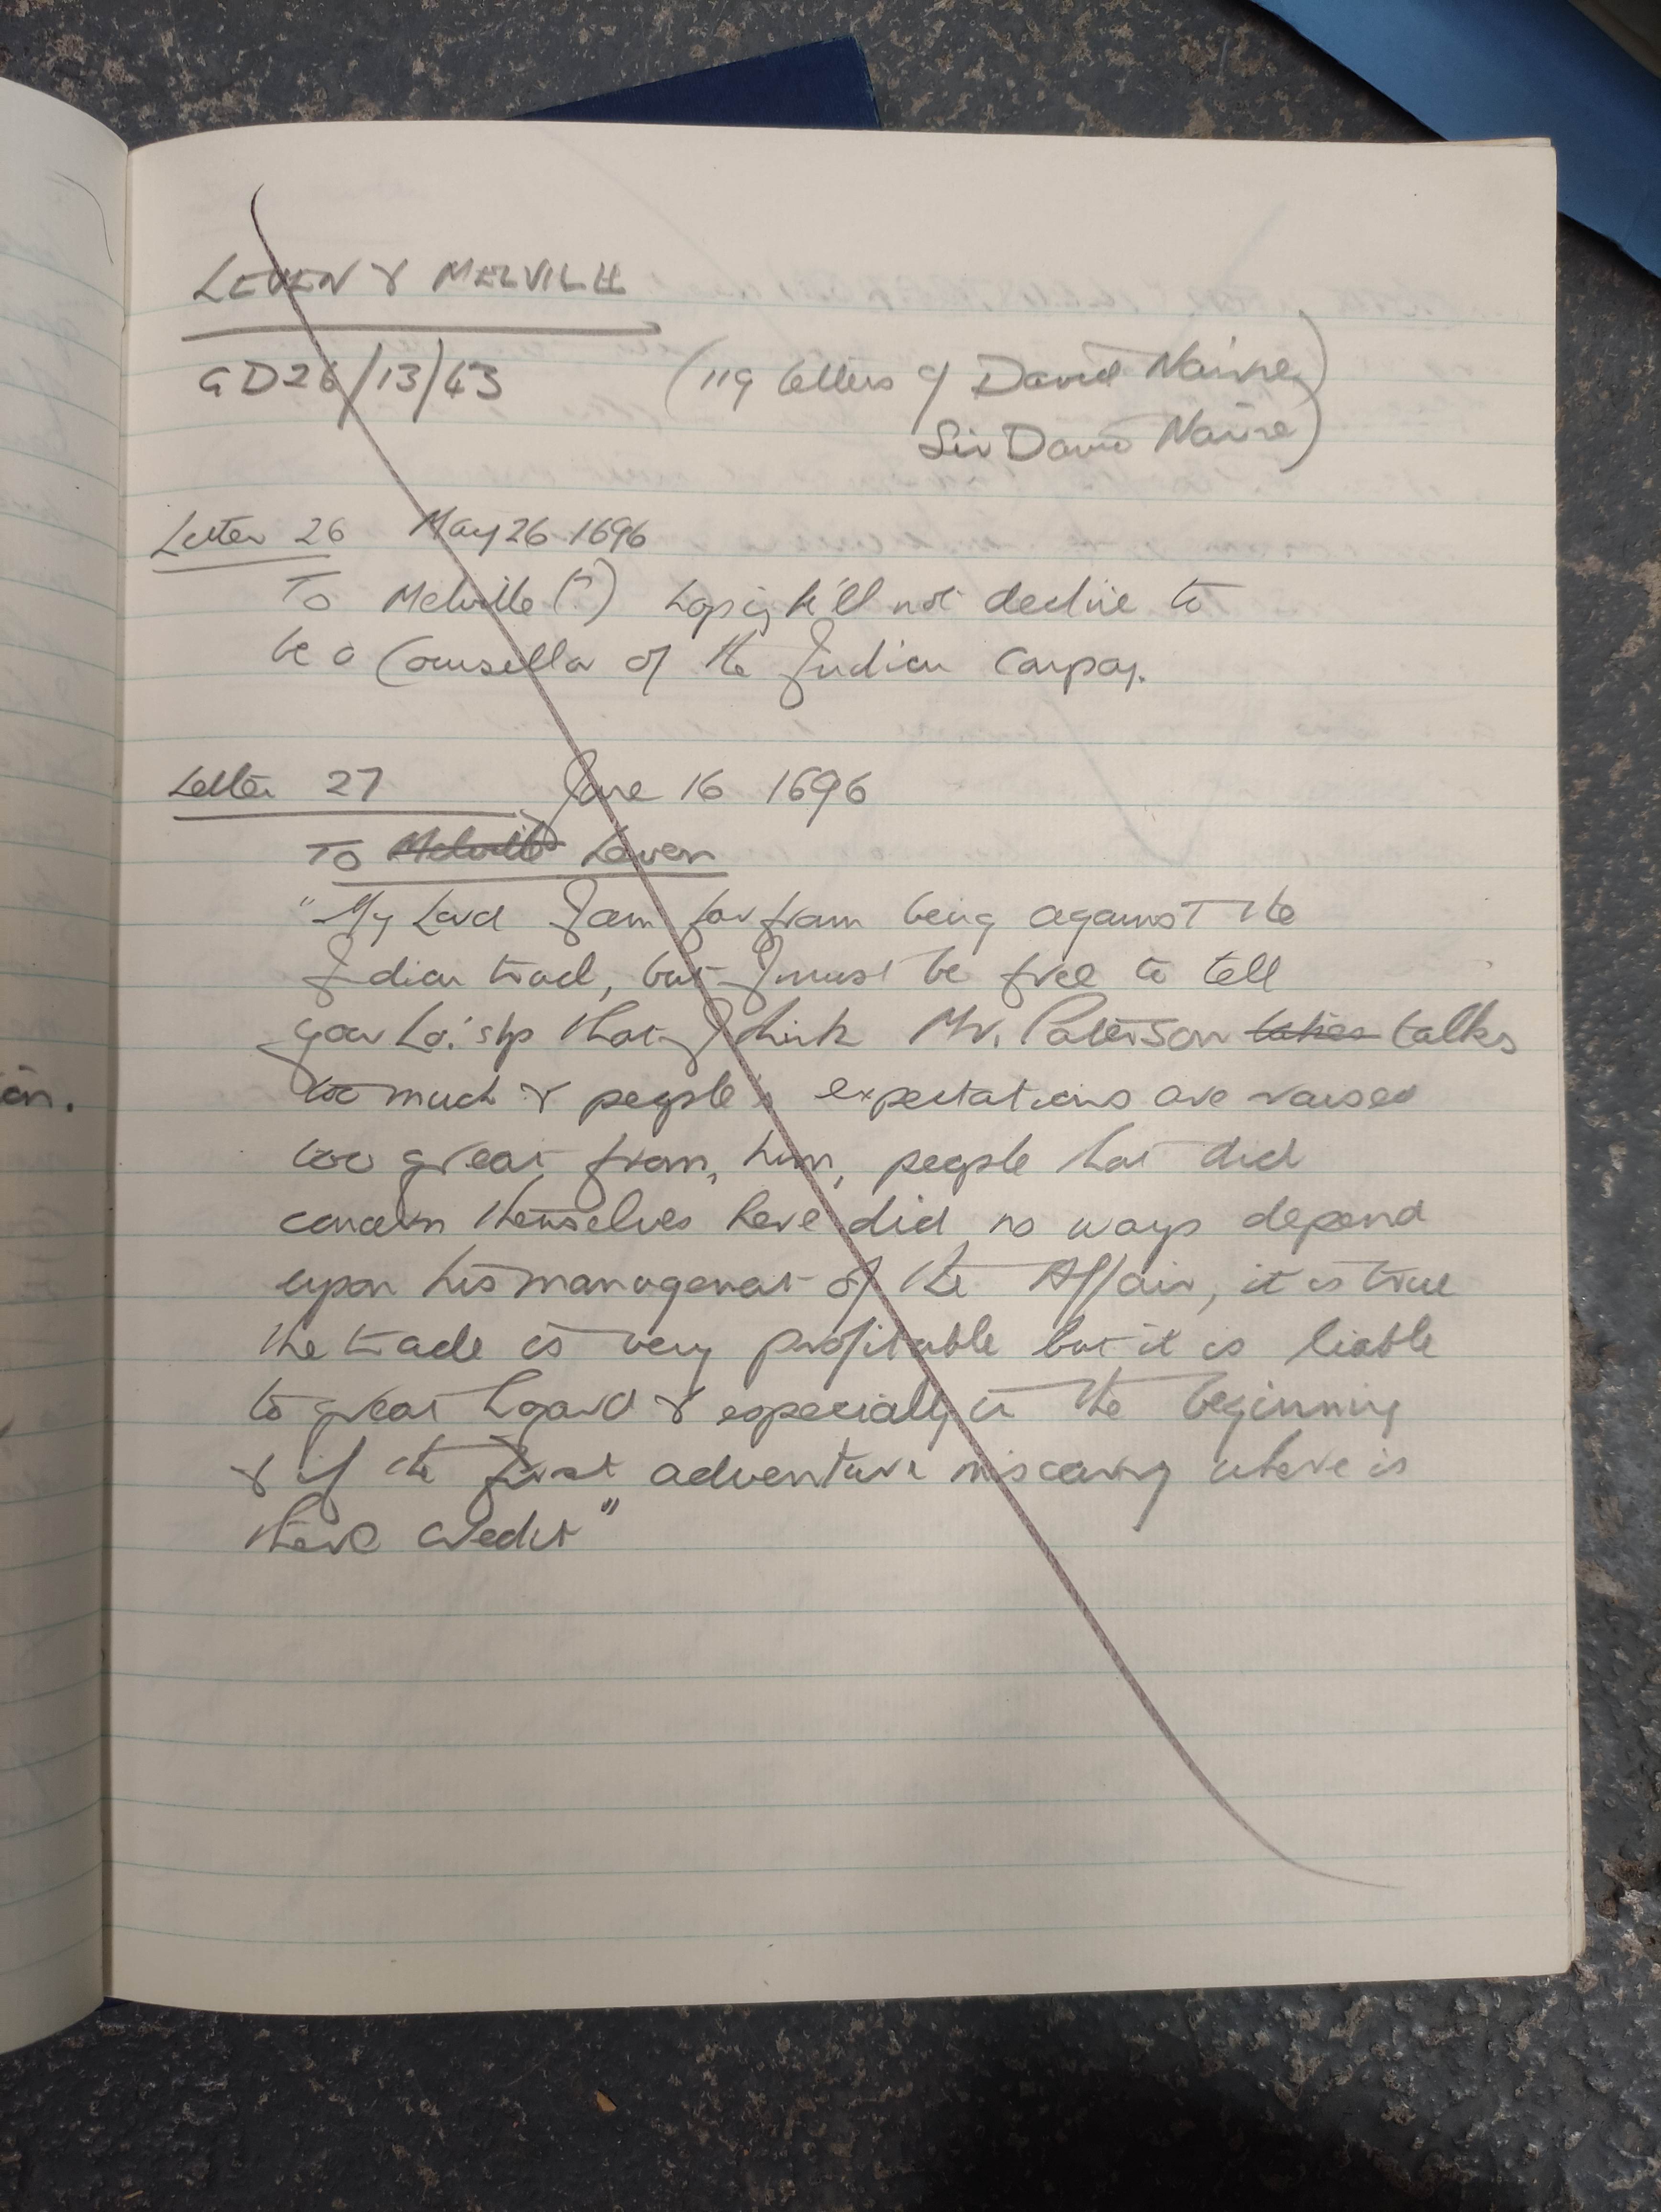 LEVEN & MELVILLE
GD26/13/43 (119 letters of David Nairne,
Sir David Nairne)
Letter 26 May 26 1696
To Melville (?) hoping he'll not decline to
be a Counsellor of the Indian Company.
Letter 27 June 16 1696
To Melville Leven
"My Lord I am far from being against the
Indian trade, but I must be free to tell
your Lo:'shp that I think Mr. Paterson talks
too much & people's expectations are raised
too great from him, people that did
concern themselves here did no ways depend
upon his management of the Affair, it is true
the trade is very profitable but it is liable
to great hazard & especially in the beginning
& if the first adventure miscarry where is
there credit"
an.